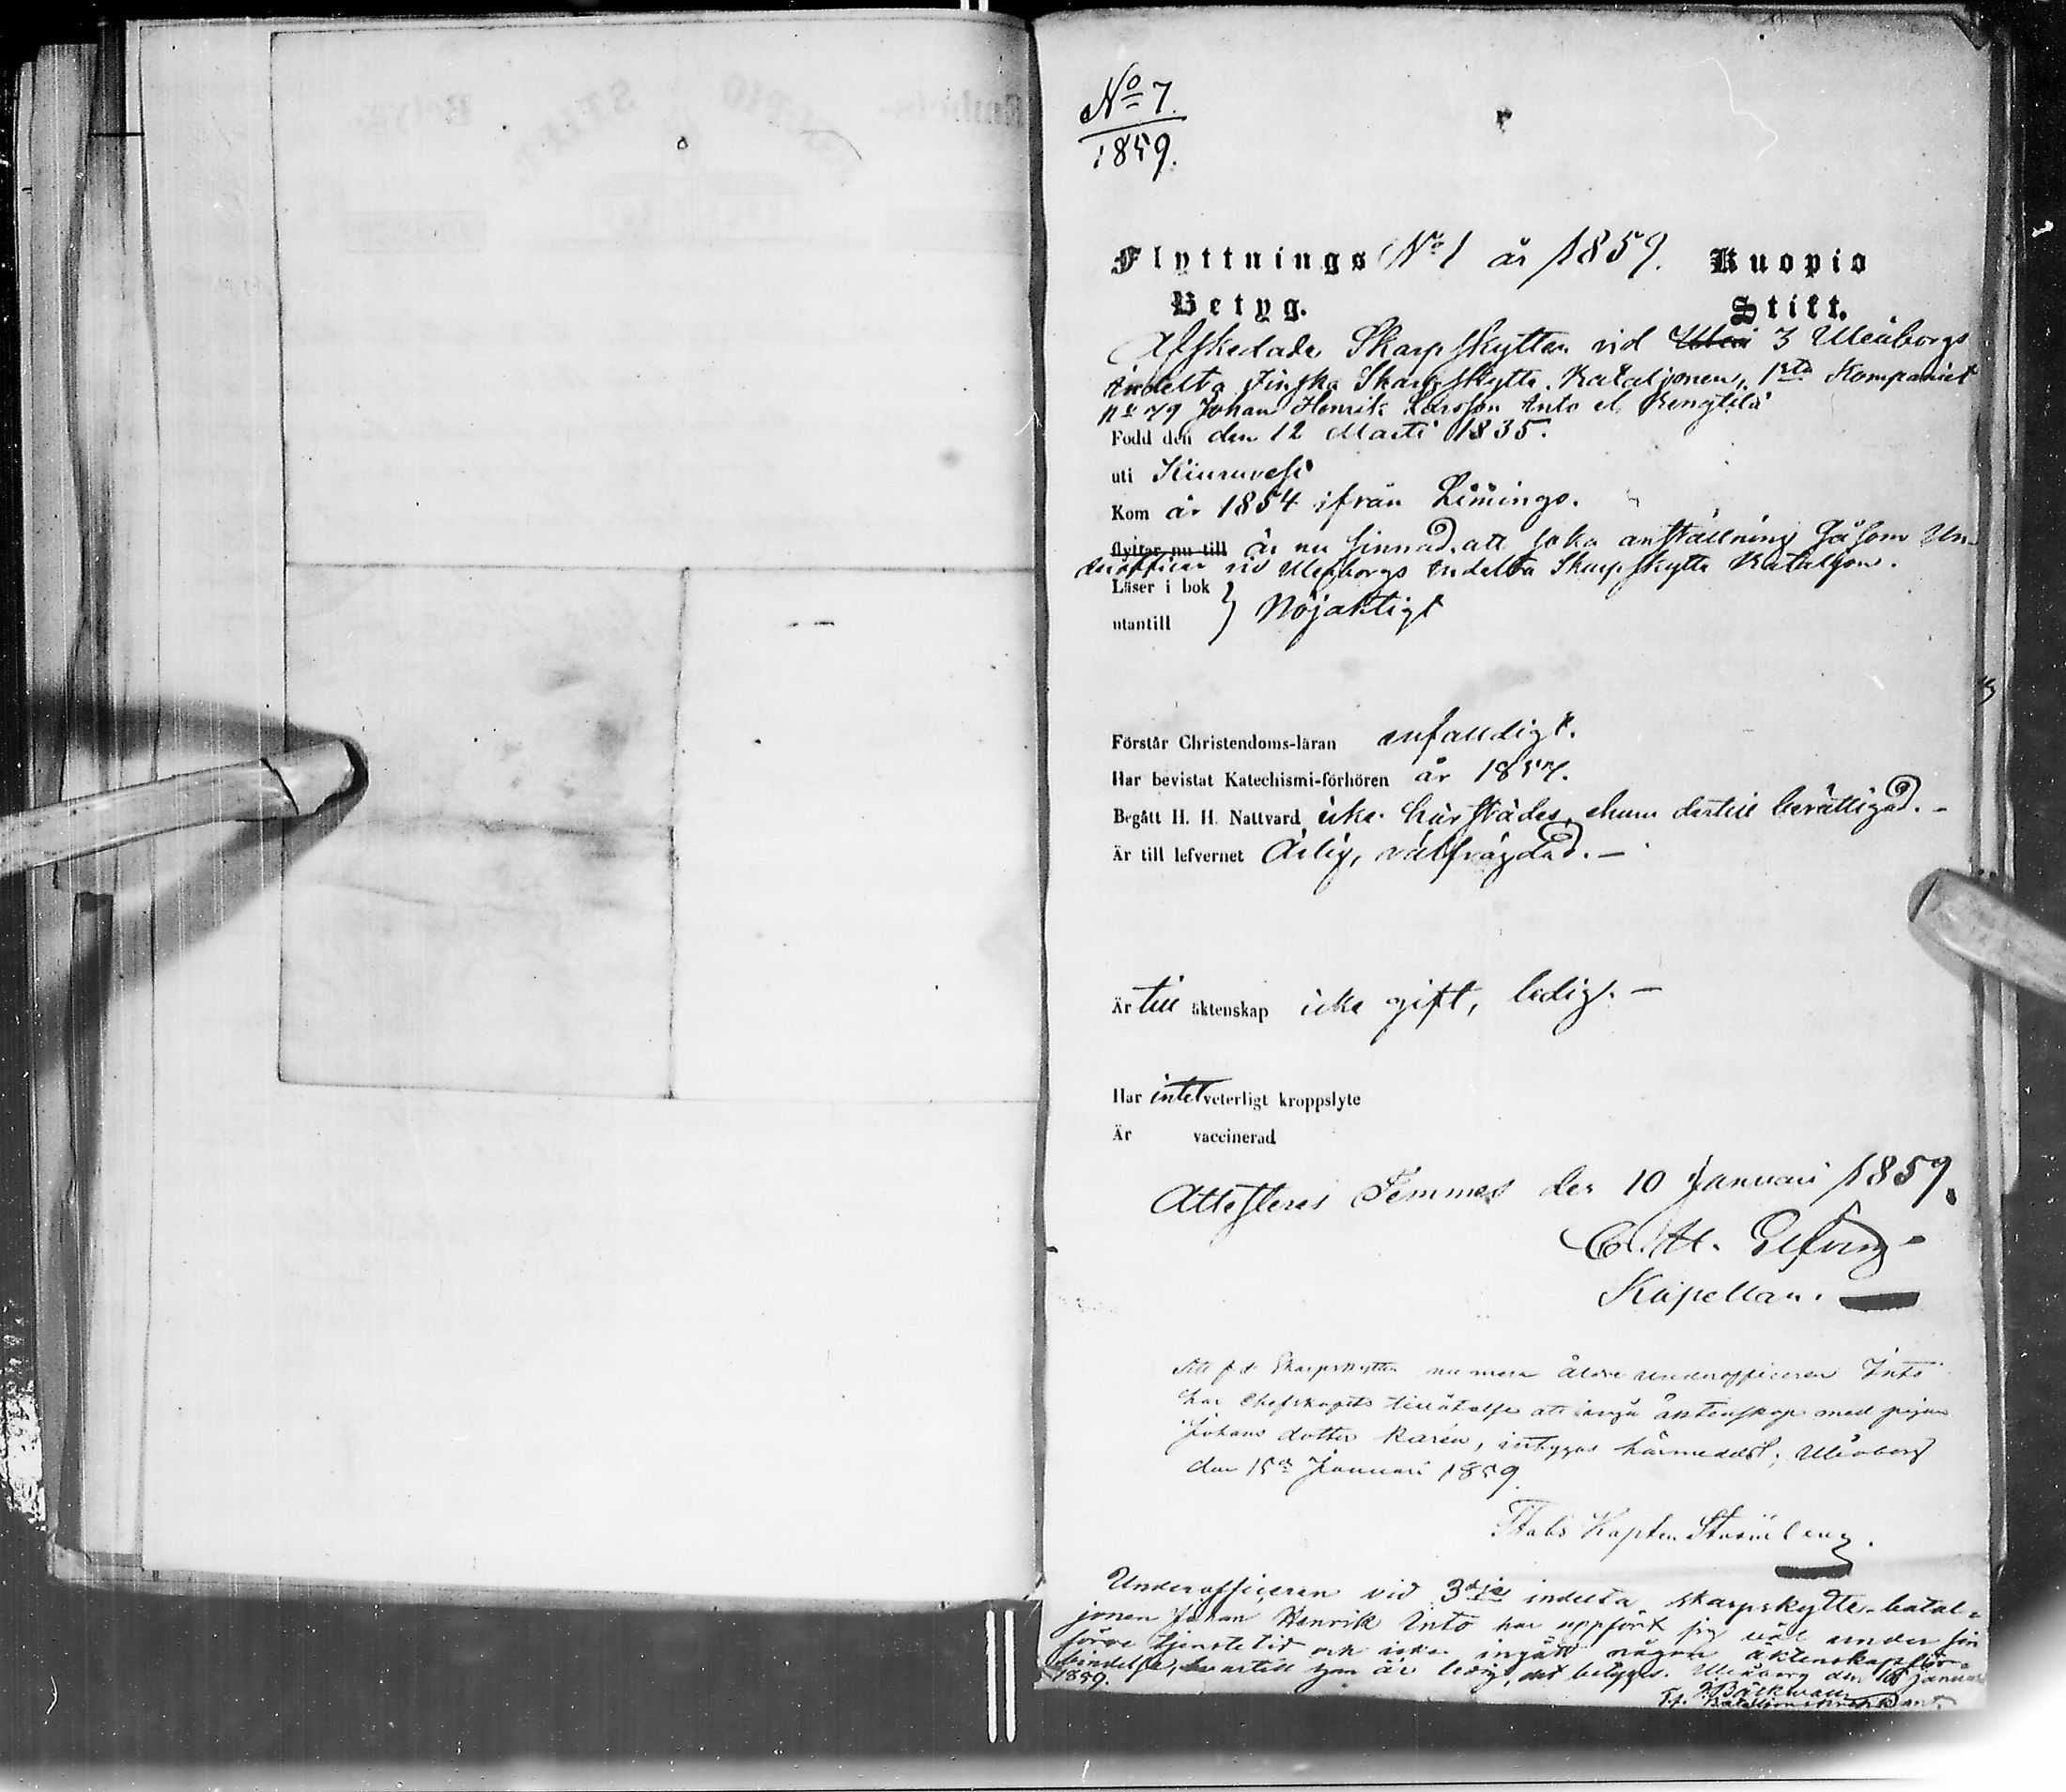 No 7.
1859.
Flyttnings No 1 år 1859. Kuopio
Betyg. Stift.
Afskedade Skarpskytten vid 3 Uleåborgs
indelta Finska Skarpskytte Bataljonen, 1sta Kompaniet
No 79 Johan Henrik Larsson Into el. Rengtilä
Född den den 12 Marti 1835.
uti Kiuruvesi
Kom år 1854 ifrån Limingo.
flyttar nu till är nu sinnad att söka anställning såsom Un-
derofficer vid Uleåborgs Indelta Skarpskytte Bataljon.
Läser i bok
utantill } Nöjaktigt
Förstår Christendoms-läran enfaldigt.
Har bevistat Katechismi-förhören år 1857.
Begått H. H. Nattvard icke härstädes, ehuru dertill berättigad. –
Är till lefvernet ärlig, välfrägdad. –
Är till äktenskap icke gift, ledig. –
Har intet veterligt kroppslyte
Är vaccinerad
Attesteras Temmes den 10 Januari 1859.
C. H. Elfving
Kapellan.
Att f. d. Skarpskytten numera äldre underofficeren Into
har Chefskapets tillåtelse att ingå äktenskap med pigan
Johans dotter Karén, intygas härmedelst; Uleåborg
den 15de Januari 1859.
Stabs Kapten
Underofficeren vid 3dje indelta skarpskytte-batal-
jonen Johan Henrik Into har uppfört sig väl under sin
förra tjenstetid och icke ingått någon äktenskapsför-
bindelse, hvartill han är ledig, det betygas. Uleåborg den 16 Januari
1859.
Bäckman